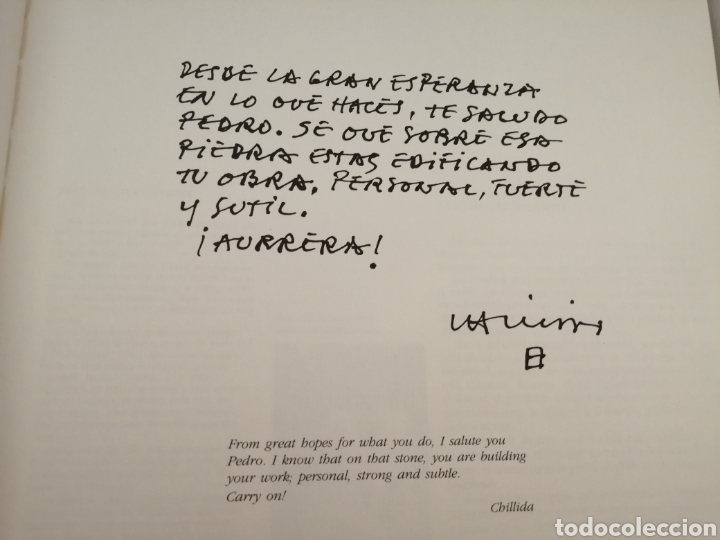 DESDE LA GRAN ESPERANZA
EN LO QUE HACES, TE SALUDO
PEDRO. SÉ QUE SOBRE ESA
PIEDRA ESTAS EDIFICANDO
TU OBRA, PERSONAL, FUERTE
Y SUTIL.
¡AURRERA!
From great hopes for what you do, I salute you
Pedro. I know that on that stone, you are building
your work; personal, strong and subtle.
Carry on!
Chillida
todocoleccion